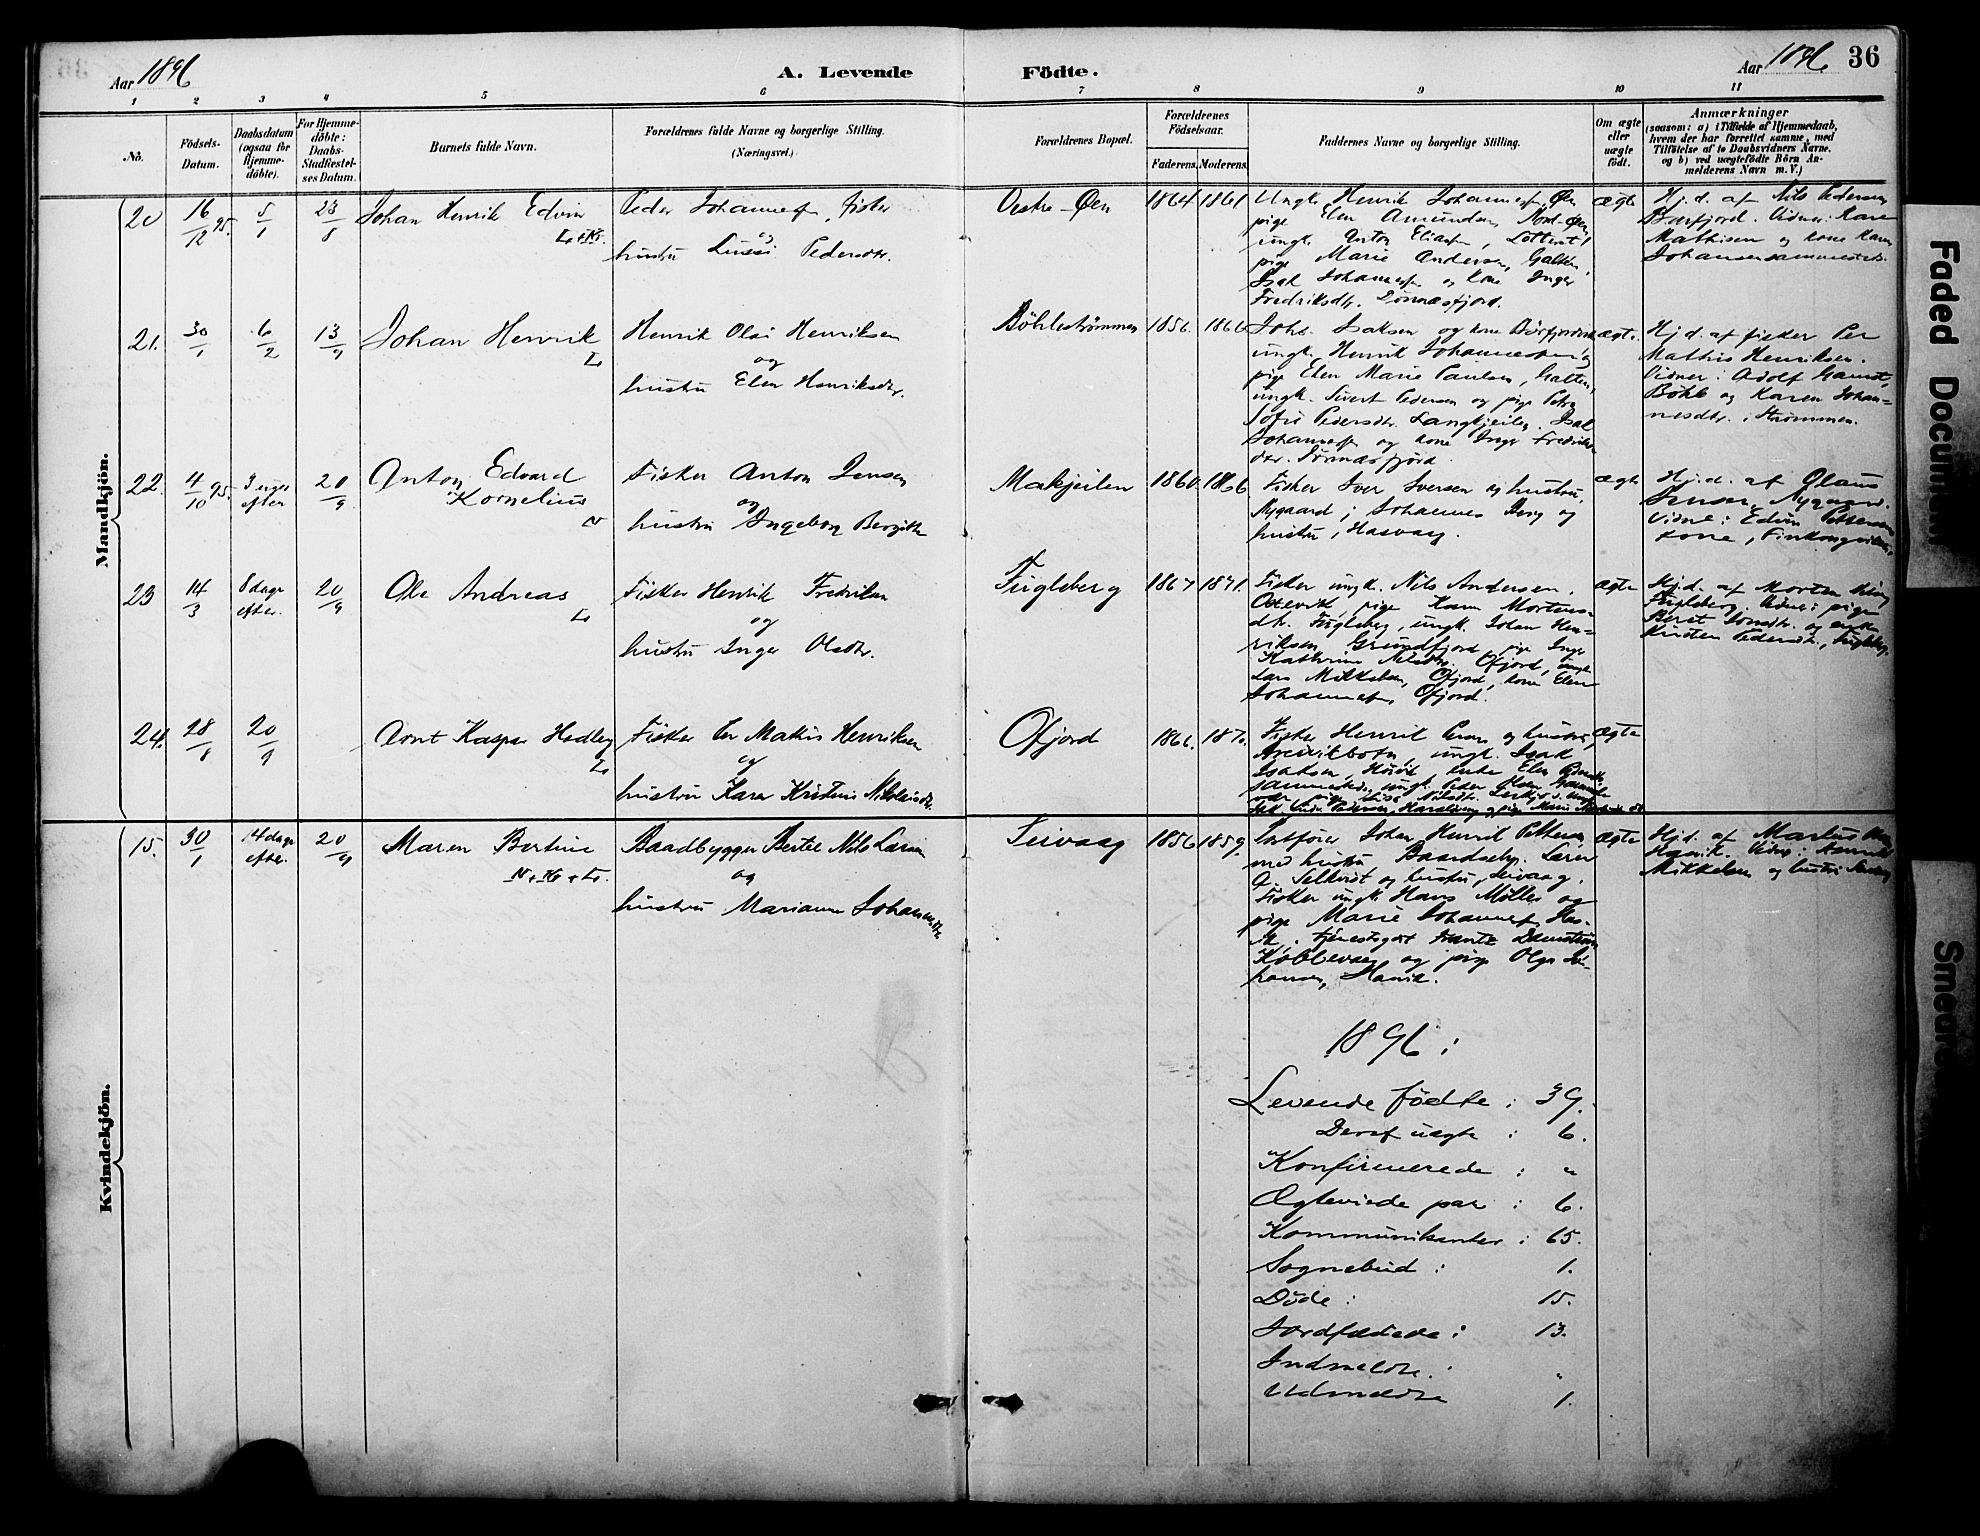 Aar 1896
A. Levende Födte.
Aar 1896.
36
1 2 3 4 5 6 7 8 9 10 11
No.
Födsels-Datum.
Daabsdatum (ogsaa for Hjemme-döbte).
For Hjemme-döbte: Daabs-Stadfæstel-ses Datum.
Barnets fulde Navn.
Forældrenes fulde Navne og borgerlige Stilling. (Næringsvei.)
Forældrenes Bopæl.
Forældrenes Födselsaar.
Faderens. Moderens.
Faddernes Navne og borgerlige Stilling.
Om ægte eller uægte födt.
Anmærkninger
(saasom: a) i Tilfælde af Hjemmedaab,
hvem der har forrettet samme, med
Tilföielse af to Daabsvidners Navne,
og b) ved uægtefödte Börn An-
melderens Navn m. V.)
Mandkjön.
20 16/12 95. 5/1 23/8 Johan Henrik Edvin
Peder Johannesen, fisker
og
hustru Lussi Pedersdtr.
Østre-Øen 1864 1861
Ungk. Henrik Johannesen, Øen
pige Elen Amundsen, Nord-Øen
ungk. Anton Eliasen,
pige Marie Andersen, Galten,
Isak Johannesen og kone Inger
Fredriksdtr. Dönnæsfjord.
ægte
Hj.d. af Nils Pedersen
Bærfjord. Vidner: Kone
Mathisen og kone Karen
Johansen sammesteds.
21. 30/1 6/2 13/9 Johan Henrik
L
Henrik Olai Henriksen
og
hustru Elen Henriksdtr.
Böhlestrømmen 1856. 1866
Johs. Isaksen og kone Bærfjorden
ungk. Henrik Johannesen og
pige Elen Marie Paulsen, Galten,
ungk. Sivert Pedersen og pige Petra
Sofie Pedersdtr. Langkjeilen, Isak
Johannesen og kone Inger Fredriks-
dtr. Dönnæsfjord.
ægte.
Hj.d. af fisker Per
Mathis Henriksen.
Vidner: Adolf Hansen,
Böhle og Karen Johan-
nesdtr. i Strømmen.
22. 4/10 95. 3 uger efter 20/9 Anton Edvard
Kornelius
N
Fisker Anton Jensen
og
hustru Ingeborg Bergitte
Makjeilen 1860. 1866
Fisker Iver Iversen og hustru,
Nygaard; Johannes Berg og
hustru, Hasvaag.
ægte
Hj.d. af Olaus
Jensen, Nygaard.
Vidne: Edvin Pettersen
kone, Finkongvik.
23 14/3 8 dage efter. 20/9 Ole Andreas
L
Fisker Henrik Fredriksen
og
hustru Inger Olsdtr.
Fugleberg 1867 1871.
Fisker ungk. Nils Andersen,
Oxevik, pige Karen Mortens-
dtr. Fugleberg, ungk. Johan Hen-
riksen Grundfjord, pige Inger
Kathrine Nilsdtr. Ofjord, ungk.
Lars Mikkelsen, Ofjord, kone Elen
Johannesen, Ofjord.
ægte
Hj.d. af Morten
Fugleberg. Vidner: pige
Beret Jonsdtr. og enken
Kirsten Pedersdtr., Fugleberg.
24. 28/8 20/9 Arnt Kaspar Hedley
L
Fisker Per Mathis Henriksen
og
hustru Karen Kristine Nikolaisdtr.
Ofjord 1866. 1870.
Fisker Henrik Persen og hustru,
ungk. Isak
Isaksen, enke Elen
sammesteds, ungk. Peder Olsen
ægte
Kvindekjön.
15. 30/1 14 dage efter. 20/9 Maren Bertine
Baadbygger Bertel Nils Larsen
og
hustru Marianne Johannesdtr.
Seivaag 1856 1859.
Postfører Johan Henrik Pettersen
med hustru Baardseby. Lærer
O. Selkvist og hustru, Seivaag,
Fisker ungk. Hans Möller og
pige Marie Johannesen,
tjenestegut Frantz
Kobbevaag og pige Olga Jo-
hansen, Hasvik.
ægte
Hj.d. af Martus
Hasvik. Vidner:
Mikkelsen og hustru Seivaag
1896:
Levende födte: 39.
Deraf uægte: 6.
Konfirmerede: "
Ægteviede par: 6.
Kommunikanter: 65.
Sognebud: 1.
Døde: 15.
Jordfæstede: 13.
Indmeldte: "
Udmeldte 1.
Faded Document
Smeared